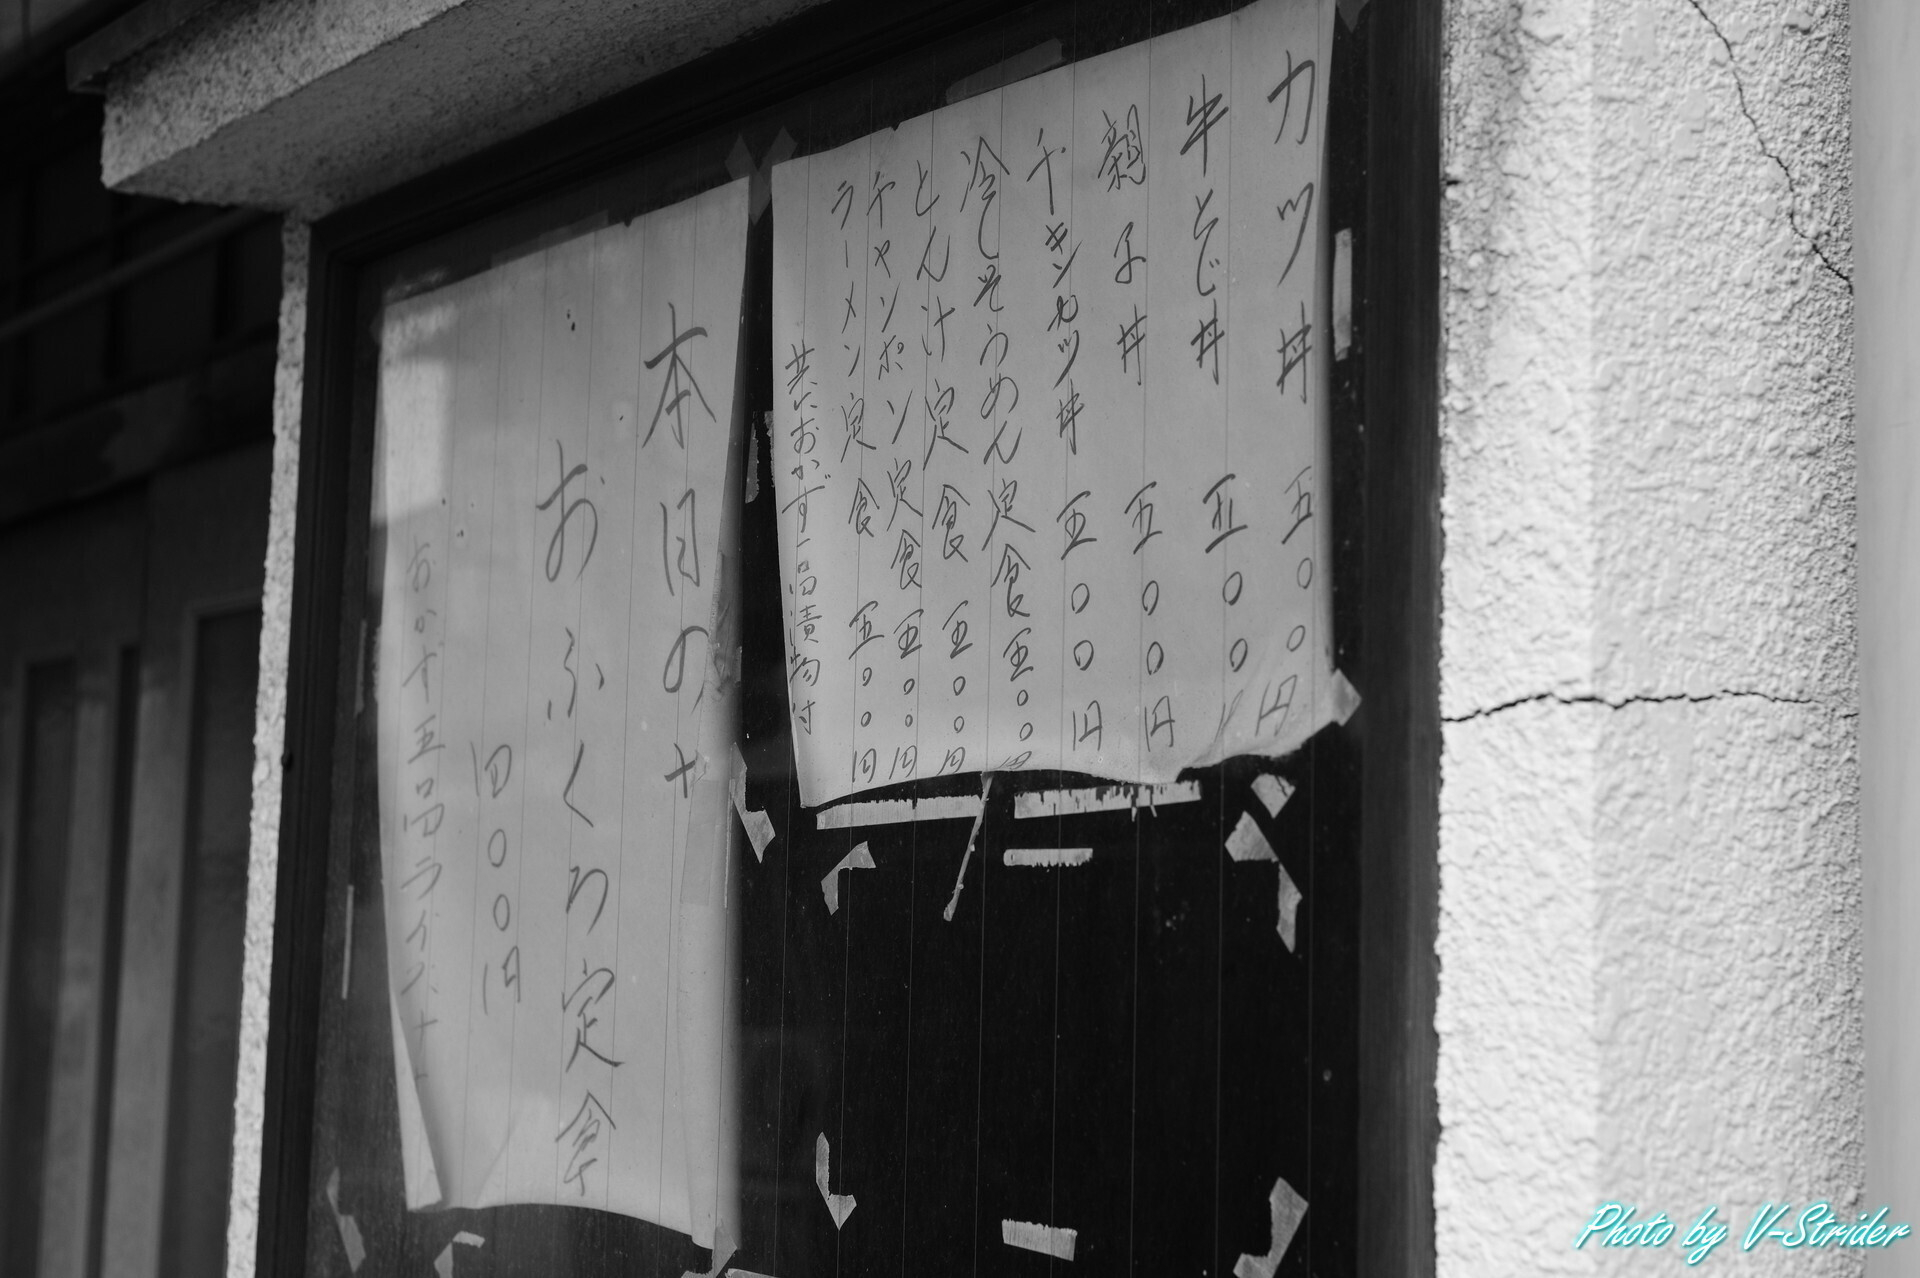 カツ丼 五〇〇円
牛とじ丼 五〇〇円
親子丼 五〇〇円
チキンカツ丼 五〇〇円
冷しそうめん定食 五〇〇円
とん汁定食 五〇〇円
チャンポン定食 五〇〇円
ラーメン定食 五〇〇円
共におかず一品漬物付
本日の
おふくろ定食
四〇〇円
おかず五品ライス
Photo by V-Strider